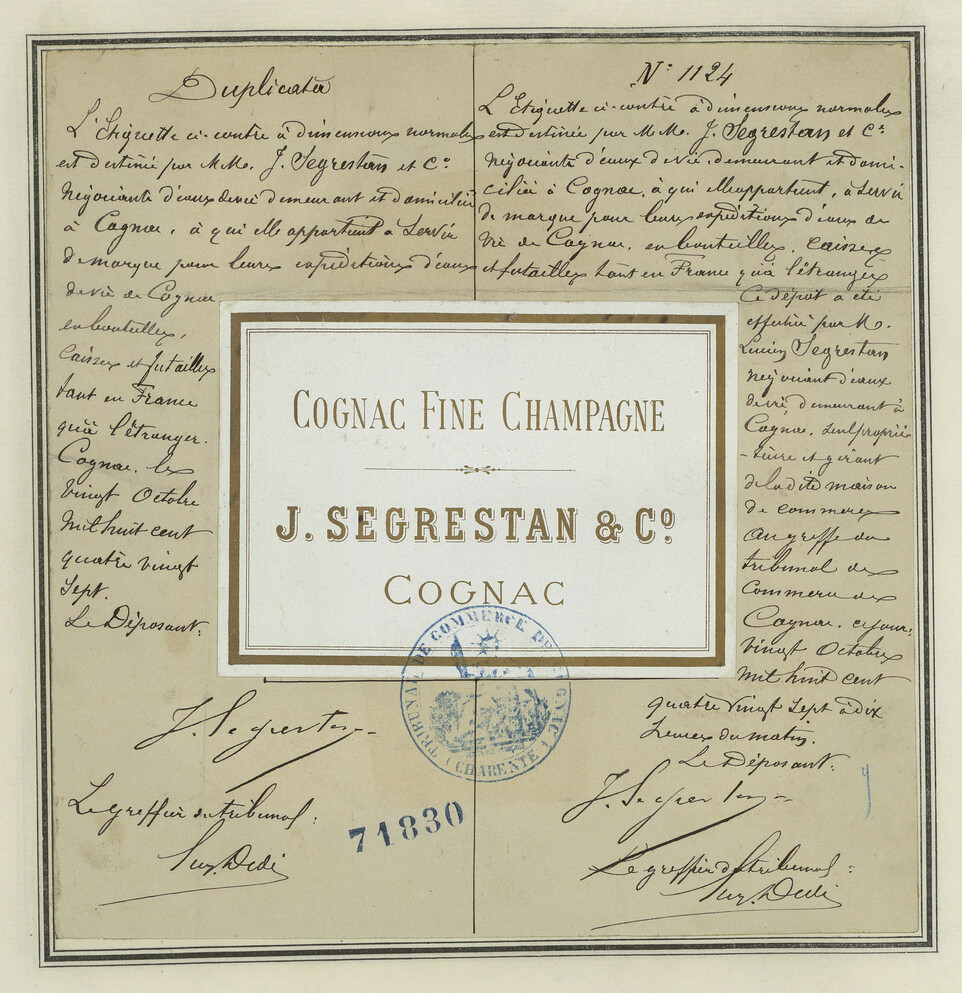 Duplicata
L'Etiquette ci-contre à dimensions normales
est destinée par M.M. J. Segrestan et Cº
négociants d'eaux de vie demeurant et domiciliés
à Cognac, à qui elle appartient à servir
de marque pour leurs expéditions d'eaux
de vie de Cognac
en bouteilles,
caisses et futailles
tant en France
qu'à l'étranger.
Cognac, le
vingt Octobre
mil huit cent
quatre vingt
sept.
Le Déposant:
J. Segrestan
Le greffier du tribunal:
Nº 1124
L'Etiquette ci-contre à dimensions normales
est destinée par M.M. J. Segrestan et Cº
négociants d'eaux de vie, demeurant et domi-
ciliés à Cognac, à qui elle appartient, à servir
de marque pour leurs expéditions d'eaux de
vie de Cognac, en bouteilles, caisses
et futailles tant en France qu'à l'étranger
Ce dépôt a été
effectué par M.
Lucien Segrestan
négociant d'eaux
de vie, demeurant à
Cognac, seul proprié-
-taire et gérant
de la dite maison
de commerce
au greffe du
tribunal de
Commerce de
Cognac, ce jour:
vingt Octobre
mil huit cent
quatre vingt sept à dix
heures du matin.
Le Déposant:
J. Segrestan
Le greffier du tribunal:
COGNAC FINE CHAMPAGNE
J. SEGRESTAN & Cº
COGNAC
TRIBUNAL DE COMMERCE DE COGNAC
(CHARENTE)
71830